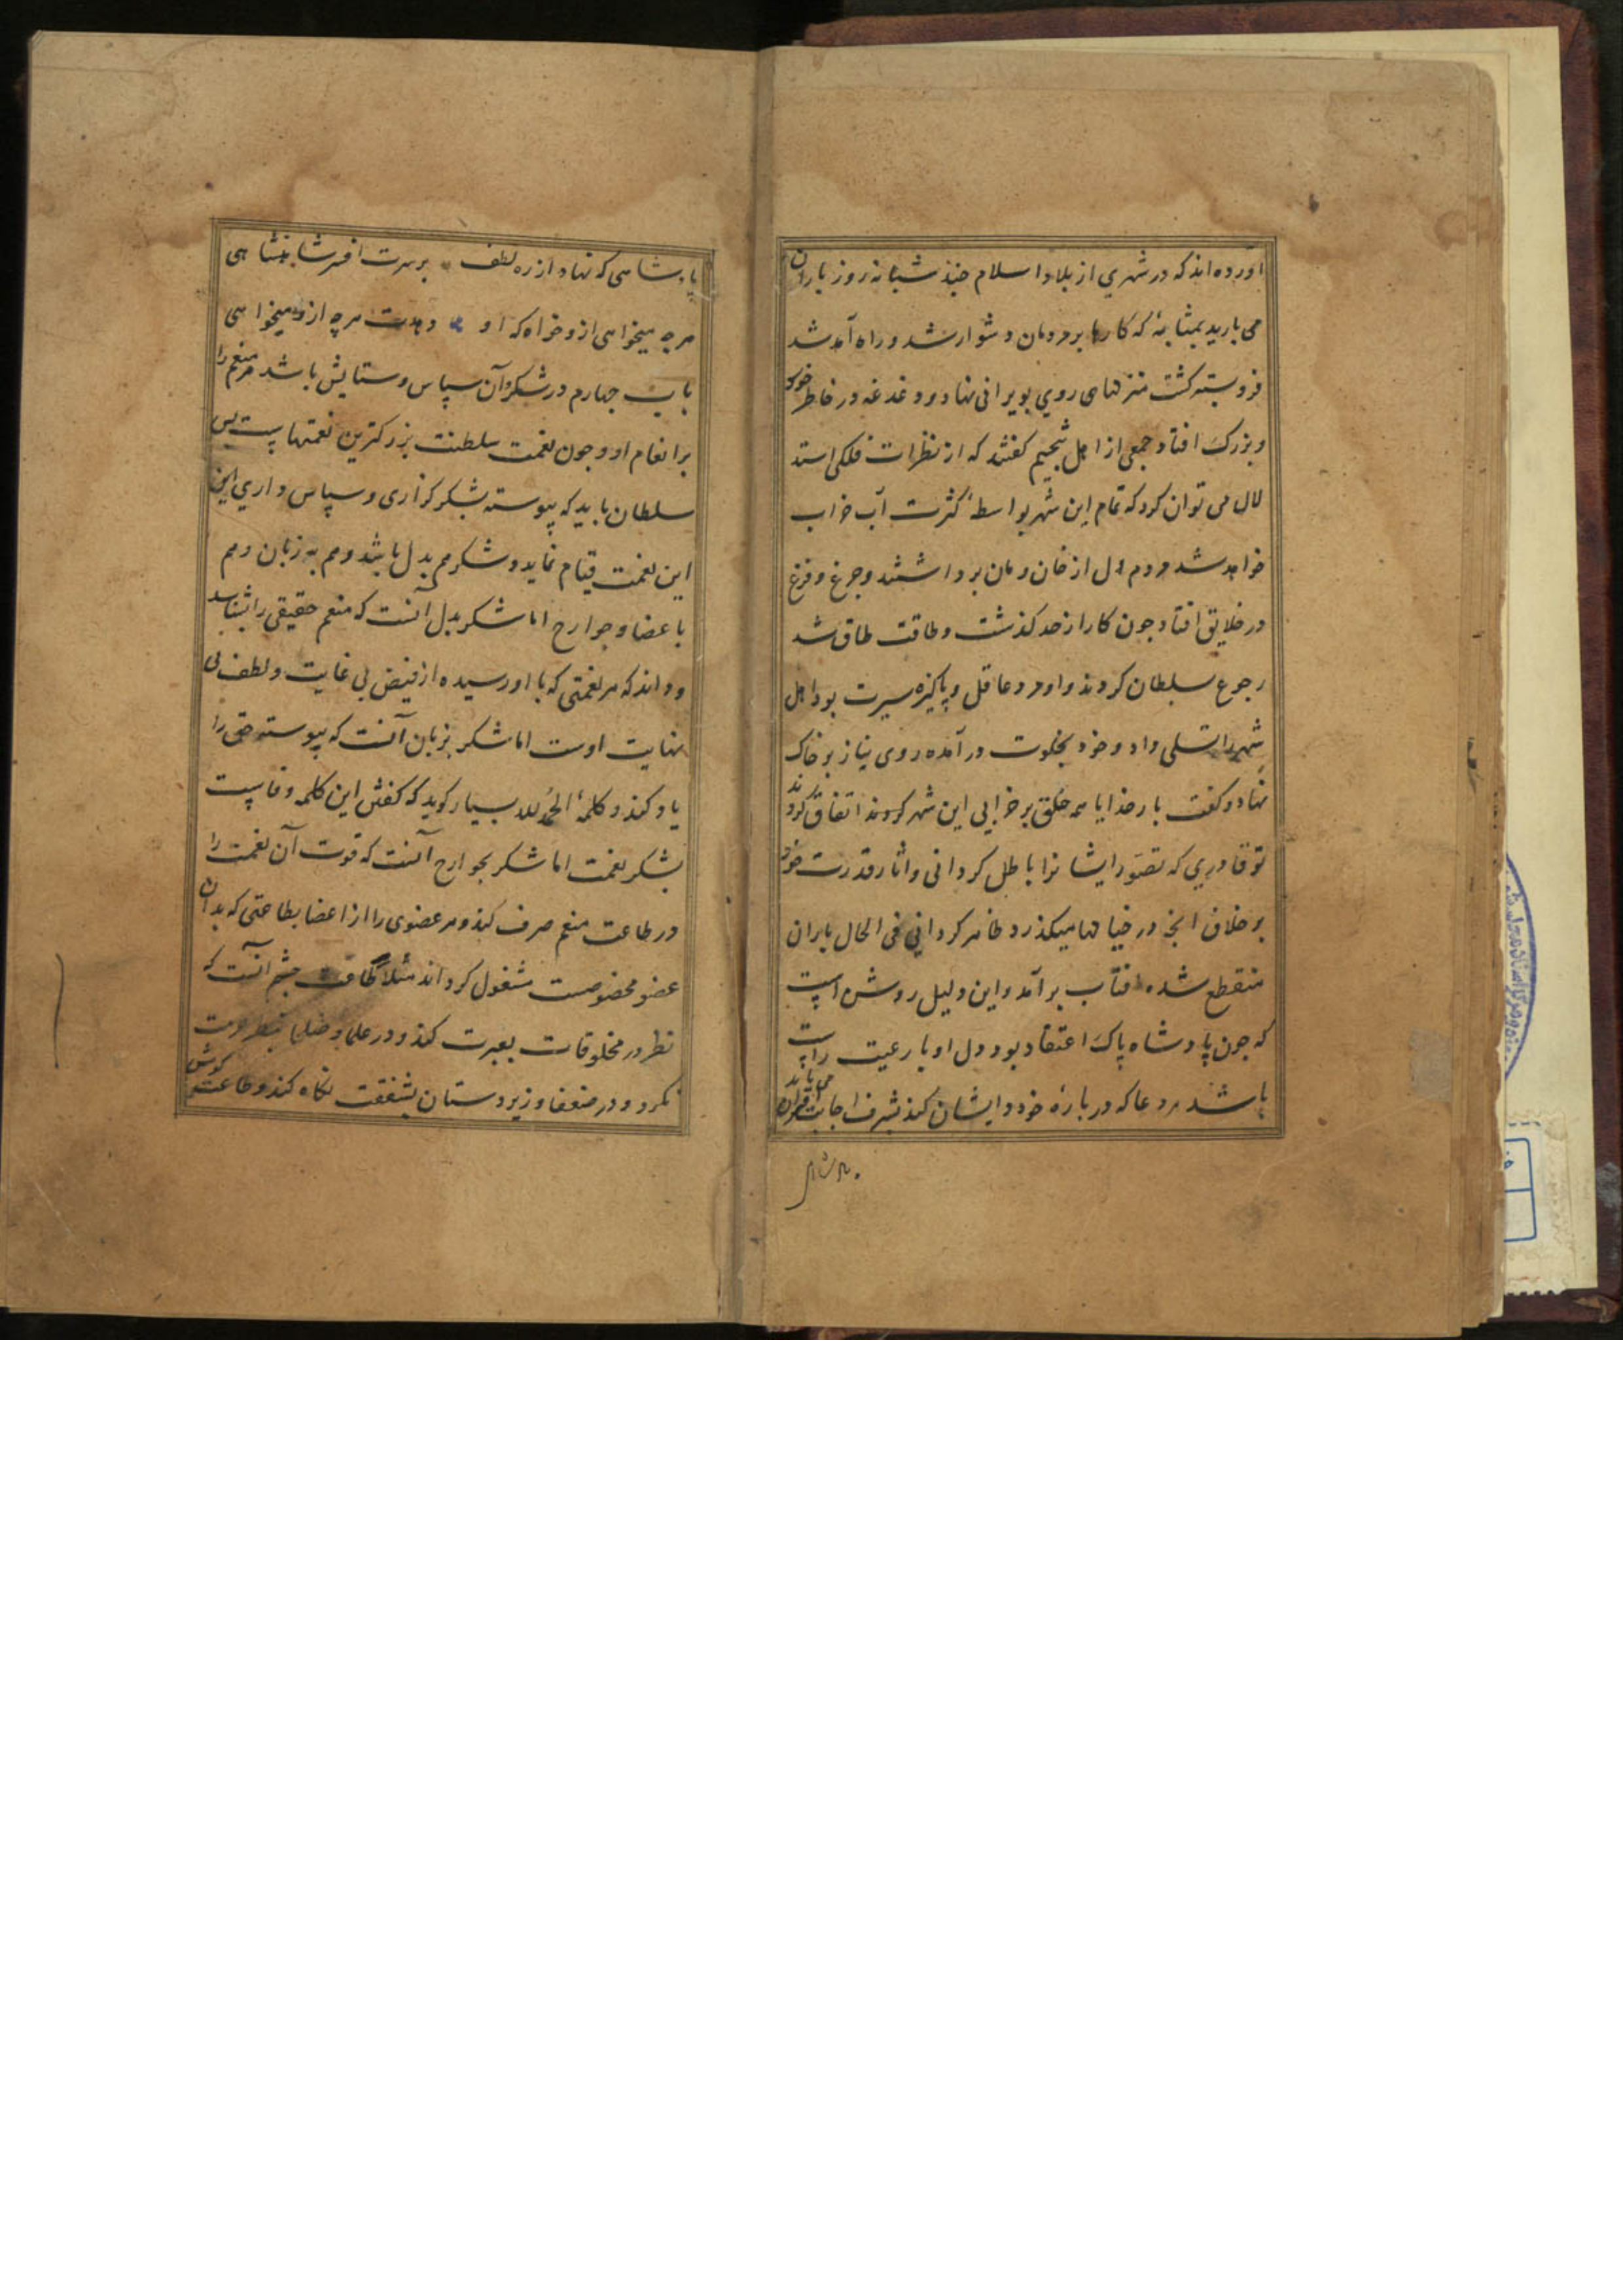 آورده‌اند که در شهری از بلاد اسلام چند شبانه روز باران
می بارید بمثابهٔ که کارها بر مردمان دشوار شد و راه آمد شد
فرو بسته کشت منزلهای روی بویرانی نهاد و دغدغه در خاطر خورد
و بزرک افتاد جمعی از اهل تنجیم کفتند که از نظرات فلکی استد
لال می توان کرد که تمام این شهر بواسطهٔ کثرت آب خراب
خواهد شد مردم دل از خان و مان برداشتند و جزع و فزع
در خلایق افتاد چون کار از حد کذشت و طاقت طاق شد
رجوع سلطان کردند و او مرد عاقل و پاکیزه سیرت بود اهل
شهر را تسلی داد و خود بخلوت در آمده روی نیاز بر خاک
نهاد و کفت بار خدایا همه خلق بر خرابی این شهر کردند اتفاق کردند
تو قادری که تصور ایشانرا باطل کردانی و اثار قدرت خود
بر خلاف انچه در خیالها میکذرد ظاهر کردانی فی الحال باران
منقطع شده افتاب برآمد و این دلیل روشن است
که چون پادشاه پاک اعتقاد بود و دل او با رعیت راست
باشد هر دعا که در بارهٔ خود و ایشان کند بشرف اجابت اقتران می یابد
پادشاهی که نهاد از ره لطف بر سرت افسر شاهنشاهی
هر چه میخواهی ازو خواه که او دهدت هر چه ازو میخواهی
باب چهارم در شکر و آن سپاس و ستایش باشد مر منعم را
بر انعام او و چون نعمت سلطنت بزرکترین نعمتهاست پس
سلطان باید که پیوسته بشکر کزاری و سپاس داری این
این نعمت قیام نماید و شکر هم بدل باشد و هم به زبان و هم
باعضا و جوارح اما شکر بدل آنست که منعم حقیقی را بشناسد
و داند که هر نعمتی که با او رسیده از فیض بی غایت و لطف بی
نهایت اوست اما شکر بزبان آنست که پیوسته حق را
یاد کند و کلمهٔ الحمد لله بسیار کوید که کفتن این کلمه وفاست
بشکر نعمت اما شکر بجوارح آنست که قوت آن نعمت را
در طاعت منعم صرف کند و هر عضوی را از اعضا بطاعتی که بدان
عضو مخصوصست مشغول کرداند مثلا طاعت چشم آنست که
نظر در مخلوقات بعبرت کند و در علما و صلحا بنظر حرمت
نکرد و در ضعفا و زیردستان بشفقت نکاه کند و طاعت کوش